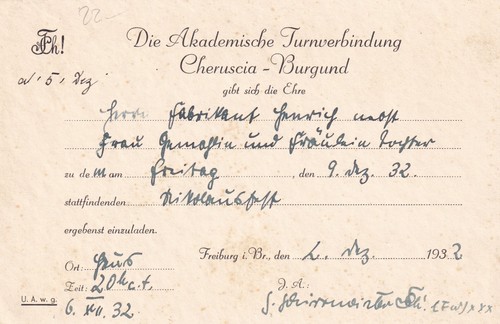 22
Die Akademische Turnverbindung
Cheruscia - Burgund
a/ 5. Dez.
gibt sich die Ehre
Herrn Fabrikant Henrich nebst
Frau Gemahlin und Fräulein Tochter
zu dem am Freitag, den 9. Dez. 32.
stattfindenden Nikolausfest
ergebenst einzuladen.
Freiburg i. Br., den 2. Dez. 1932
Ort: Haus
Zeit: 20 h c.t.
J. A.:
U. A. w. g. 6. XII. 32.